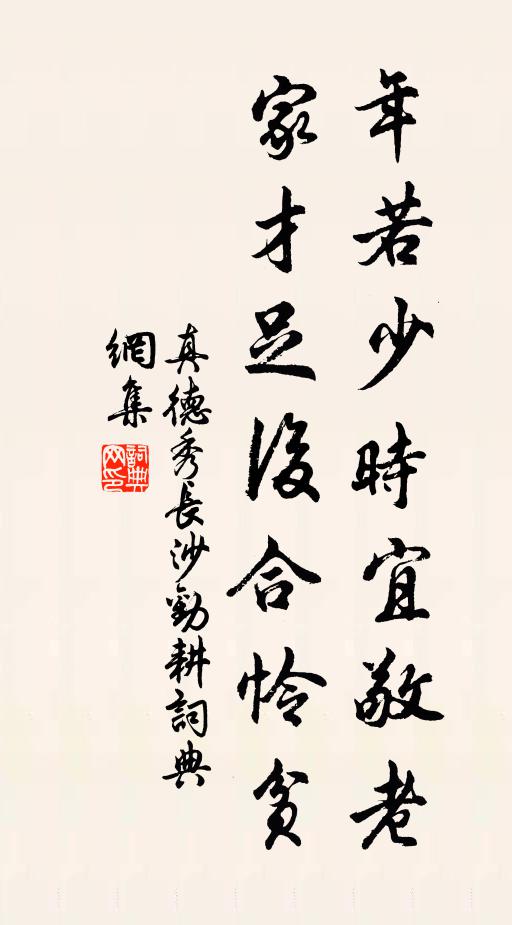 年若少時宜敬老
家才足後合怜貧
真德秀長沙勸耕詞典
網集
詞典
网印